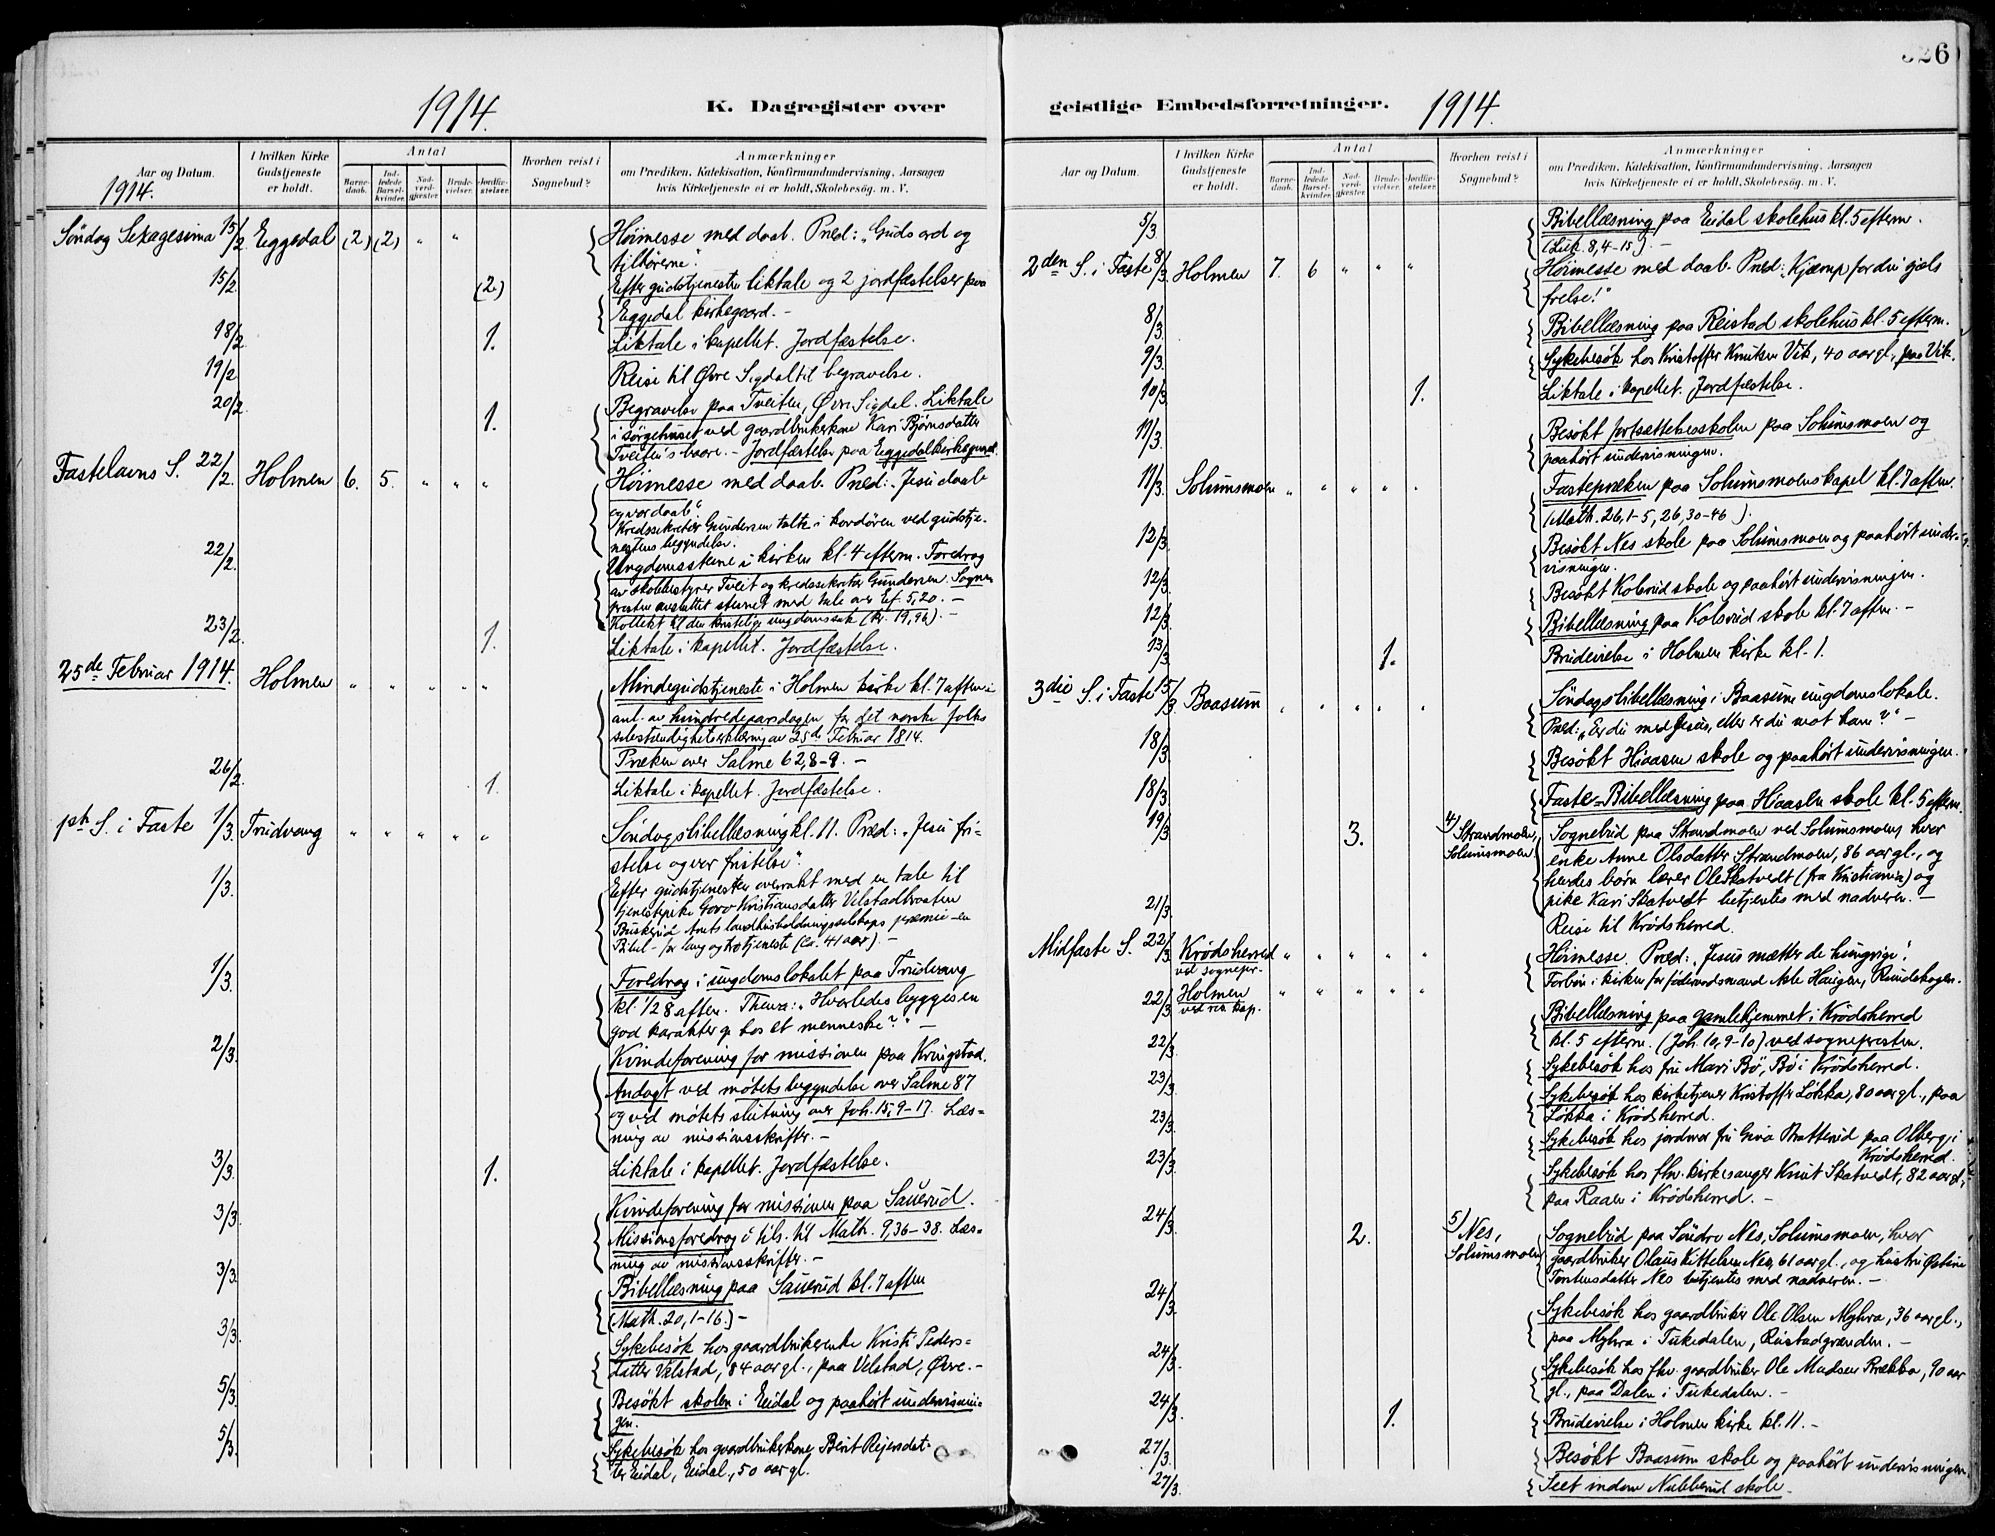 326
1914.
K. Dagregister over
geistlige Embedsforretninger.
1914.
Aar og Datum.
1914.
I hvilken Kirke Gudstjeneste er holdt.
Antal
Barnedaab.
Indledede Barselkvinder.
Nadverdgjester.
Brudevielser.
Jordfæstelser.
Hvorhen reist i Sognebud?
Anmærkninger
om Prædiken, Katekisation, Konfirmandundervisning, Aarsagen
hvis Kirketjeneste ei er holdt, Skolebesøg, m. V.
Søndag Sexagesima 15/2 Eggedal (2) (2) " " Høimesse med daab. Præd: "Guds ord og
tilhørerne".
15/2 (2) Efter gudstjenesten liktale og 2 jordfæstelser paa
Eggedal kirkegaard. –
18/2. 1. Liktale i kapellet. Jordfæstelse.
19/2 Reise til Øvre Sigdal til begravelse.
20/2. 1. Begravelse paa Tveiten, Øvre Sigdal. Liktale
i sørgehuset ved gaardbrukerkone Kari Bjørnsdatter
Tveiten's baare. – Jordfæstelse paa Eggedal kirkegaard.
Fastelavns S. 22/2. Holmen 6. 5. " " " Høimesse med daab. Præd: "Jesu daab
og vor daab".
Kredssekretær Gundersen talte i kordøren ved gudstje-
nestens begyndelse.
22/2. Ungdomsstevne i kirken kl. 4 efterm. Foredrag
av skolebestyrer Tveit og kredssekretær Gundersen. Sogne-
presten avsluttet stevnet med tale over Ef. 5, 20. –
Kollekt til den kristelige ungdomssak (kr. 19,96). –
23/2. 1. Liktale i kapellet. Jordfæstelse.
25de Februar 1914. Holmen " " " " " Mindegudstjeneste i Holmen kirke kl. 7 aften i
anl. av hundredeaarsdagen for det norske folks
selvstændighetserklæring av 25de Februar 1814.
Præken over Salme 62, 8-9. –
26/2 1. Liktale i kapellet. Jordfæstelse.
1ste S. i Faste 1/3. Trudvang " " " " " Søndagsbibellæsning kl. 11. Præd: "Jesu fri-
stelse og vor fristelse".
1/3. Efter gudstjenesten overrakt med en tale til
tjenestepike Goro Kristiansdatter Velstadbraaten
Buskerud Amts landhusholdningsselskaps præmie – en
Bibel – for lang og tro tjeneste (ca. 41 aar). –
1/3. Foredrag i ungdomslokalet paa Trudvang
kl. 1/2 8 aften. Thema: "Hvorledes bygges en
god karakter op hos et menneske?" –
2/3. Kvindeforening for missionen paa Kringstad.
Andagt ved møtets begyndelse over Salme 87
og ved møtets slutning over Joh. 15, 9-17. Læs-
ning av missionsskrifter. –
3/3. 1. Liktale i kapellet. Jordfæstelse.
3/3. Kvindeforening for missionen paa Sauerud.
Missionsforedrag i tils. til Math. 9, 36-38. Læs-
ning av missionsskrifter. –
3/3. Bibellæsning paa Sauerud kl. 7 aften
(Math. 20, 1-16.) –
3/3. Sykebesøk hos gaardbrukerenke Kristi Peders-
datter Velstad, 84 aar gl., paa Velstad, Øvre. –
5/3. Besøkt skolen i Eidal og paahørt undervisnin-
gen.
5/3. Sykebesøk hos gaardbrukerkone Berit Reiersdat-
ter Eidal, Eidal, 50 aar gl.
Aar og Datum.
I hvilken Kirke Gudstjeneste er holdt.
Antal
Barnedaab.
Indledede Barselkvinder.
Nadverdgjester.
Brudevielser.
Jordfæstelser.
Hvorhen reist i Sognebud?
Anmærkninger
om Prædiken, Katekisation, Konfirmandundervisning, Aarsagen
hvis Kirketjeneste ei er holdt, Skolebesøg, m. V.
5/3 Bibellæsning paa Eidal skolehus kl. 5 efterm.
(Luk. 8, 4-15). –
2den S. i Faste 8/3. Holmen 7. 6 " " " Høimesse med daab. Præd: "Kjæmp for din sjæls
frelse!"
8/3. Bibellæsning paa Reistad skolehus kl. 5 efterm.
9/3. Sykebesøk hos Kristoffer Knutsen Vik, 40 aar gl., paa Vik.
10/3. 1. Liktale i kapellet. Jordfæstelse.
11/3. Besøkt fortsættelsesskolen paa Solumsmoen og
paahørt undervisningen.
11/3. Solumsmoen " " " " " Fastepræken paa Solumsmoens kapel kl. 7 aften.
(Math. 26, 1-5, 26, 30-46).
12/3. Besøkt Nes skole paa Solumsmoen og paahørt under-
visningen.
12/3. Besøkt Kolsrud skole og paahørt undervisningen.
12/3. Bibellæsning paa Kolsrud skole kl. 7 aften. –
13/3. 1. Brudevielse i Holmen kirke kl. 1.
3die S. i Faste 15/3 Baasum " " " " Søndagsbibellæsning i Baasum ungdomslokale.
Præd: "Er du med Jesus, eller er du mot ham?" –
18/3. Besøkt Hiaasen skole og paahørt undervisningen.
18/3. Faste-Bibellæsning paa Hiaasen skole kl. 5 efterm.
19/3 3. 4) Strandmoen, Solumsmoen Sognebud paa Strandmoen ved Solumsmoen, hvor
enke Anne Olsdatter Strandmoen, 86 aar gl., og
hendes børn lærer Ole Skatvedt (fra Kristiania) og
pike Kari Skatvedt betjentes med nadveren. –
21/3. Reise til Krødsherred.
Midfaste S. 22/3. Krødsherred ved sognepr. " " " " " Høimesse. Præd: "Jesus mætter de hungrige".
Forbøn i kirken for føderaadsmand Asle Haugen, Rundehogen.
22/3 Holmen ved res. kap. " " " " "
22/3. Bibellæsning paa gamlehjemmet i Krødsherred
kl. 5 efterm. (Joh. 10, 9-10) ved sognepresten.
23/3. Sykebesøk hos fru Mari Bø, Bø i Krødsherred.
Sykebesøk hos kirketjener Kristoffer Løkka, 80 aar gl., paa
Løkka i Krødsherred.
23/3. Sykebesøk hos jordmor fru Gina Bratterud paa Olberg i
Krødsherred.
23/3. Sykebesøk hos fhv. kirkesanger Knut Skatvedt, 82 aar gl.,
paa Raaen i Krødsherred. –
24/3. 2. 5) Nes, Solumsmoen Sognebud paa Søndre Nes, Solumsmoen, hvor
gaardbruker Olaus Kittelsen Nes, 61 aar gl., og hustru
Torstensdatter Nes betjentes med nadveren. –
24/3. Sykebesøk hos gaardbruker Ole Olsen Myhra, 36 aar gl.,
paa Myhra i Tukedalen, Reistadgrænden. –
24/3. Sykebesøk hos fhv. gaardbruker Ole Madsen Brækka, 90 aar
gl., paa Dalen i Tukedalen. –
24/3. 1. Brudevielse i Holmen kirke kl. 11. –
27/3. Besøkt Baasum skole og paahørt undervisningen.
27/3. Seet indom Nubberud skole. –